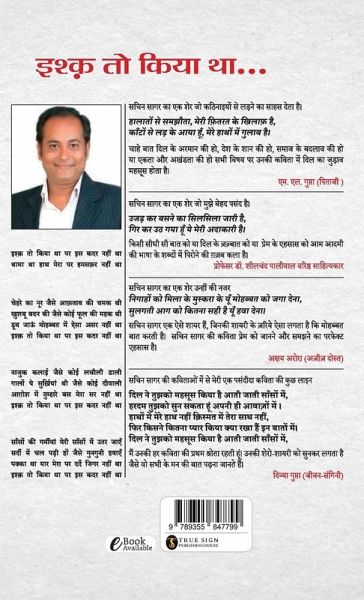 इश्क़ तो किया था...
इश्क़ तो किया था पर इस कदर नहीं था
थामा था हाथ मेरा पर हमसफ़र नहीं था
चेहरे का नूर जैसे आफ़ताब की चमक थी
खुशबू बदन की जैसे कोई फूल की महक थी
डूब जाऊं मोहब्बत में ऐसा असर नहीं था
इश्क़ तो किया था पर इस कदर नहीं था
नाज़ुक कलाई जैसे कोई लचीली डाली
गालों पे सुर्ख़ियां थी जैसे कोई दीवाली
आग़ोश में तुम्हारे बस मेरा सर नहीं था
इश्क़ तो किया था पर इस कदर नहीं था
साँसों की गर्मियां मेरी साँसों में उतर जाएँ
सर्दी में चल पड़ी हों जैसे गुनगुनी हवाएँ
पक्का था यार मेरा पर दर्दे जिगर नहीं था
इश्क़ तो किया था पर इस कदर नहीं था
सचिन सागर का एक शेर जो कठिनाइयों से लड़ने का साहस देता है।
हालातों से समझौता, मेरी फ़ितरत के खिलाफ़ है,
काँटों से लड़ के आया हूँ, मेरे हाथों में गुलाब है।
चाहे बात दिल के अरमान की हो, देश के शान की हो, समाज के बदलाव की हो
या एकता और अखंडता की हो सभी विषय पर उनकी कविता में दिल का जुड़ाव
महसूस होता है।
एम. एल. गुप्ता (पिताजी )
सचिन सागर का एक शेर जो मुझे बेहद पसंद है।
उजड़ कर बसने का सिलसिला जारी है,
गिर कर उठ गया हूँ ये मेरी अदाकारी है।
किसी सीधी सी बात को या दिल के जज़्बात को या प्रेम के एहसास को आम आदमी
की भाषा के शब्दों में पिरोने की ग़ज़ब कला है।
प्रोफ़ेसर डॉ. शीलचंद पालीवाल वरिष्ठ साहित्यकार
सचिन सागर का एक शेर उन्हीं की नजर
निगाहों को मिला के मुस्करा के यूँ मोहब्बत को जगा देना,
सुलगती आग को कितना सही है यूँ हवा देना।
सचिन सागर एक ऐसे शायर हैं, जिनकी शायरी के ज़रिये ऐसा लगता है कि मोहब्बत
बात करती है। सचिन सागर की कविता प्रेम को जानने और समझने का परफेक्ट
एहसास है।
अक्षय अरोरा (अज़ीज़ दोस्त)
सचिन सागर की कविताओं में से मेरी एक पसंदीदा कविता की कुछ लाइन
दिल ने तुझको महसूस किया है आती जाती साँसों में,
हरदम तुझको सुन सकता हूं अपनी ही आवाज़ों में ।
हाथों में मेरे हाथ नहीं क़िस्मत में तेरा साथ नहीं,
फिर किसने कितना प्यार किया क्या रखा हैं इन बातों में।
दिल ने तुझको महसूस किया है आती जाती साँसों में,
मैं उनकी हर कविता की प्रथम श्रोता रहती हूं। उनकी शेरो-शायरी को सुनकर लगता है
जैसे वो सभी के मन की बात पढ़ना जानते है।
दिव्या गुप्ता (जीवन-संगिनी)
9 789355 847799
eBook
Available
TRUE SIGN
PUBLISHING HOUSE